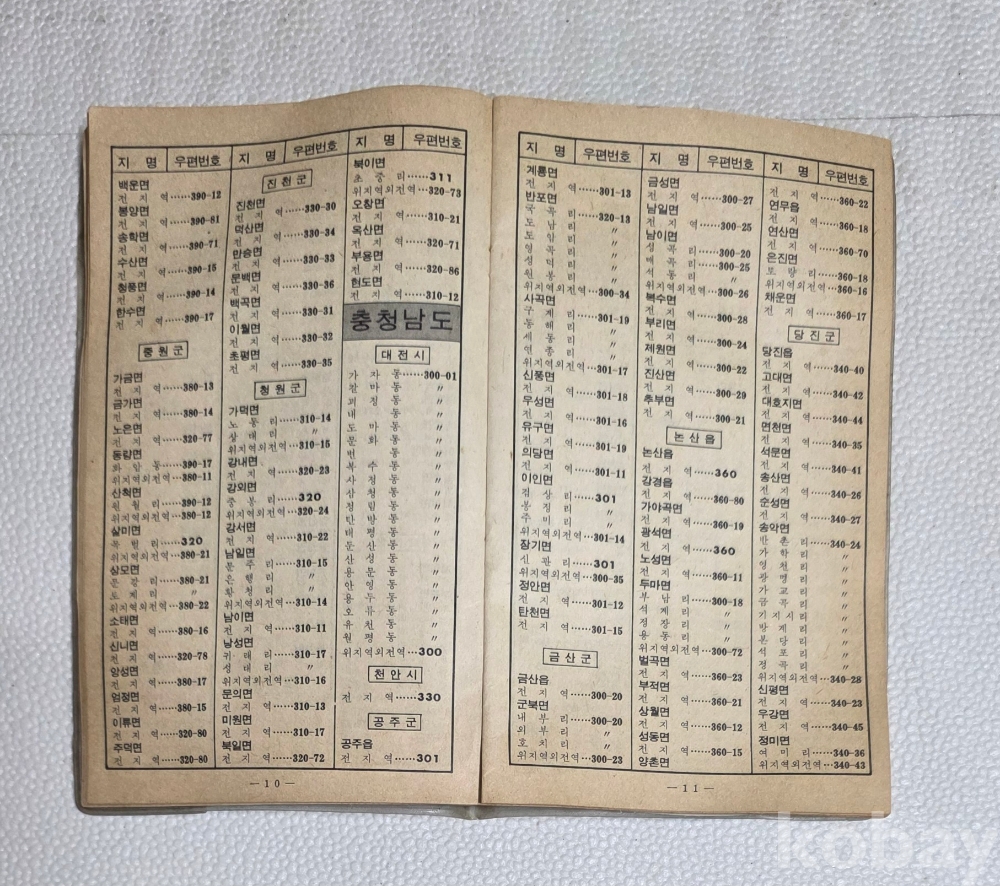 지 명 우편번호
백운면
전 지 역……390-12
봉양면
전 지 역……390-81
송학면
전 지 역……390-71
수산면
전 지 역……390-15
청풍면
전 지 역……390-14
한수면
전 지 역……390-17
중원군
가금면
전 지 역……380-13
금가면
전 지 역……380-14
노은면
전 지 역……320-77
동량면
화 암 동……390-17
위지역외전역…380-11
산척면
원 월 리……390-12
위지역외전역…380-12
살미면
목 벌 리……320
위지역외전역…380-21
상모면
문 강 리……380-21
토 계 리 〃
위지역외전역…380-22
소태면
전 지 역……380-16
신니면
전 지 역……320-78
앙성면
전 지 역……380-17
엄정면
전 지 역……380-15
이류면
전 지 역……320-80
주덕면
전 지 역……320-80
지 명 우편번호
진천군
진천면
전 지 역……330-30
덕산면
전 지 역……330-34
만승면
전 지 역……330-33
문백면
전 지 역……330-36
백곡면
전 지 역……330-31
이월면
전 지 역……330-32
초평면
전 지 역……330-35
청원군
가덕면
노 동 리……310-14
상 대 리 〃
위지역외전역…310-15
강내면
전 지 역……320-23
강외면
중 봉 리……320
위지역외전역…320-24
강서면
전 지 역……310-22
남일면
문 주 리……310-15
은 행 리 〃
황 청 리 〃
위지역외전역…310-14
남이면
전 지 역……310-11
낭성면
귀 래 리……310-17
성 대 리 〃
위지역외전역…310-16
문의면
전 지 역……310-13
미원면
전 지 역……310-17
북일면
전 지 역……320-72
지 명 우편번호
북이면
초 중 리……311
위지역외전역…320-73
오창면
전 지 역……310-21
옥산면
전 지 역……320-71
부용면
전 지 역……320-86
현도면
전 지 역……310-12
충청남도
대전시
가 자 동……300-01
갈 마 동 〃
괴 정 동 〃
내 동 〃
도 마 동 〃
문 화 동 〃
변 동 〃
복 수 동 〃
사 정 동 〃
삼 청 동 〃
정 림 동 〃
탄 방 동 〃
태 평 동 〃
문 산 동 〃
산 성 동 〃
용 문 동 〃
안 영 동 〃
용 두 동 〃
오 류 동 〃
유 천 동 〃
원 평 동 〃
위지역외전역…300
천안시
전 지 역……330
공주군
공주읍
전 지 역……301
—10—
지 명 우편번호
계룡면
전 지 역……301-13
반포면
국 곡 리……320-13
도 남 리 〃
도 암 리 〃
영 곡 리 〃
성 덕 리 〃
원 봉 리 〃
위지역외전역…300-34
사곡면
구 계 리……301-19
동 해 리 〃
세 동 리 〃
연 종 리 〃
위지역외전역…301-17
신풍면
전 지 역……301-18
우성면
전 지 역……301-16
유구면
전 지 역……301-19
의당면
전 지 역……301-11
이인면
검 상 리……301
봉 정 리 〃
주 미 리 〃
위지역외전역…301-14
장기면
신 관 리……301
위지역외전역…300-35
정안면
전 지 역……301-12
탄천면
전 지 역……301-15
금산군
금산읍
전 지 역……300-20
군북면
내 부 리……300-20
외 부 리 〃
호 치 리 〃
위지역외전역…300-23
지 명 우편번호
금성면
전 지 역……300-27
남일면
전 지 역……300-25
남이면
성 곡 리……300-20
매 곡 리……300-25
석 동 리 〃
위지역외전역…300-26
복수면
전 지 역……300-28
부리면
전 지 역……300-24
제원면
전 지 역……300-22
진산면
전 지 역……300-29
추부면
전 지 역……300-21
논산읍
논산읍
전 지 역……360
강경읍
전 지 역……360-80
가야곡면
전 지 역……360-19
광석면
전 지 역……360
노성면
전 지 역……360-11
두마면
부 남 리……300-18
석 계 리 〃
정 장 리 〃
용 동 리 〃
위지역외전역…300-72
벌곡면
전 지 역……360-23
부적면
전 지 역……360-21
상월면
전 지 역……360-12
성동면
전 지 역……360-15
양촌면
지 명 우편번호
전 지 역……360-22
연무읍
전 지 역……360-18
연산면
전 지 역……360-70
은진면
토 량 리……360-18
위지역외전역…360-16
채운면
전 지 역……360-17
당진군
당진읍
전 지 역……340-40
고대면
전 지 역……340-42
대호지면
전 지 역……340-44
면천면
전 지 역……340-35
석문면
전 지 역……340-41
송산면
전 지 역……340-26
순성면
전 지 역……340-27
송악면
반 촌 리……340-24
가 학 리 〃
영 천 리 〃
광 명 리 〃
가 교 리 〃
금 곡 리 〃
기 지 시 리 〃
방 계 리 〃
본 당 리 〃
석 포 리 〃
정 곡 리 〃
위지역외전역…340-28
신평면
전 지 역……340-23
우강면
전 지 역……340-45
정미면
여 미 리……340-36
위지역외전역…340-43
—11—
kobay